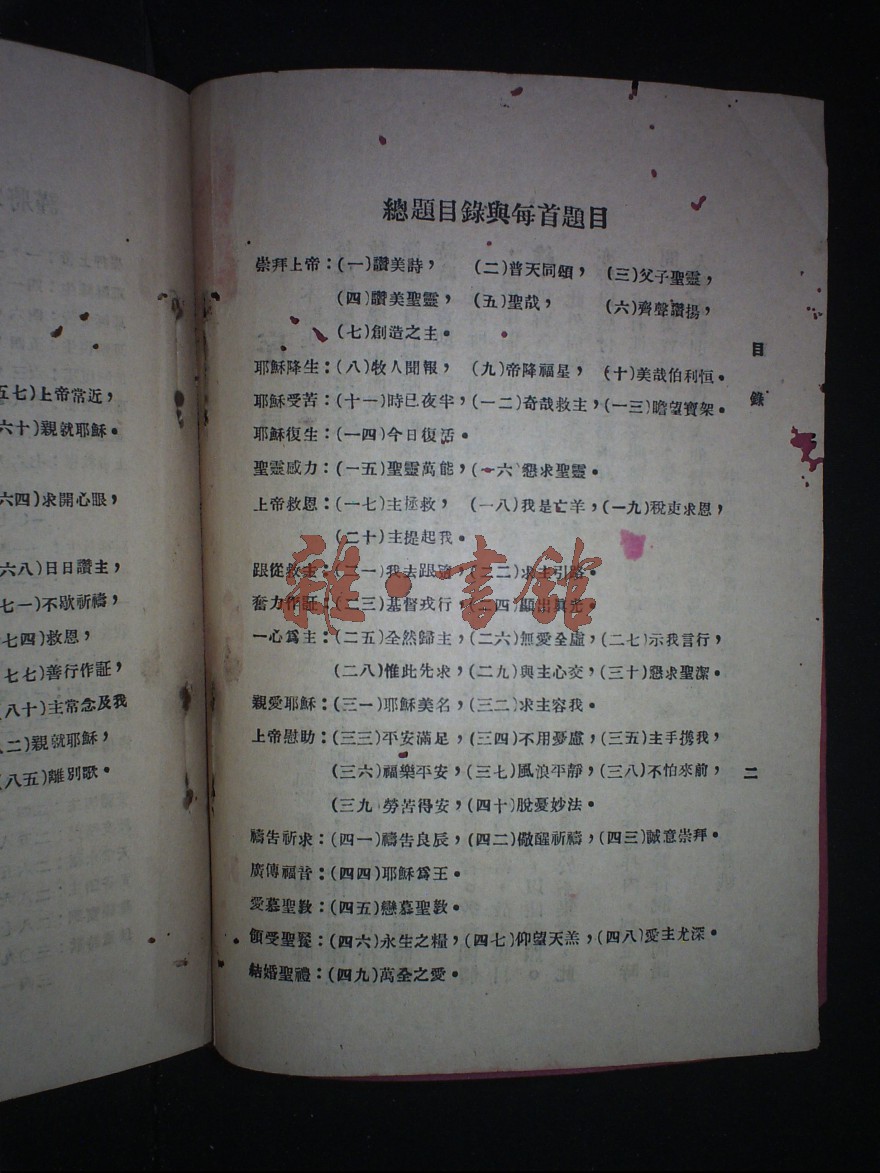 總題目錄與每首題目
崇拜上帝：(一)讚美詩，(二)普天同頌，(三)父子聖靈，
(四)讚美聖靈，(五)聖哉，(六)齊聲讚揚，
(七)創造之主。
耶穌降生：(八)牧人聞報，(九)帝降福星，(十)美哉伯利恒。
耶穌受苦：(十一)時已夜半，(一二)奇哉救主，(一三)瞻望寶架。
耶穌復生：(一四)今日復活。
聖靈感力：(一五)聖靈萬能，(一六)懇求聖靈。
上帝救恩：(一七)主拯救，(一八)我是亡羊，(一九)稅吏求恩，
(二十)主提起我。
跟從救主：(二一)我去跟隨，(二二)求主引路。
奮力作証：(二三)基督戎行，(二四)顯出真光。
一心爲主：(二五)全然歸主，(二六)無愛全虛，(二七)示我言行，
(二八)惟此先求，(二九)與主心交，(三十)懇求聖潔。
親愛耶穌：(三一)耶穌美名，(三二)求主容我。
上帝慰助：(三三)平安滿足，(三四)不用憂慮，(三五)主手携我，
(三六)福樂平安，(三七)風浪平靜，(三八)不怕來前，
(三九)勞苦得安，(四十)脫憂妙法。
禱告祈求：(四一)禱告良辰，(四二)儆醒祈禱，(四三)誠意崇拜。
廣傳福音：(四四)耶穌爲王。
愛慕聖敎：(四五)戀慕聖敎。
領受聖餐：(四六)永生之糧，(四七)仰望天羔，(四八)愛主尤深。
結婚聖禮：(四九)萬全之愛。
目錄
二
五七)上帝常近，
六十)親就耶穌。
六四)求開心眼，
六八)日日讚主，
七一)不歇祈禱，
七四)救恩，
七七)善行作証，
八十)主常念及我
八二)親就耶穌，
(八五)離別歌。
雜·書館